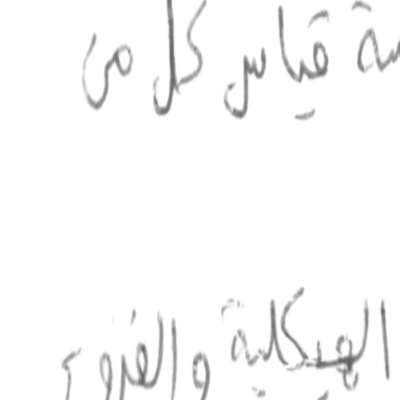 قياس كل من
الهيكلية والفروع